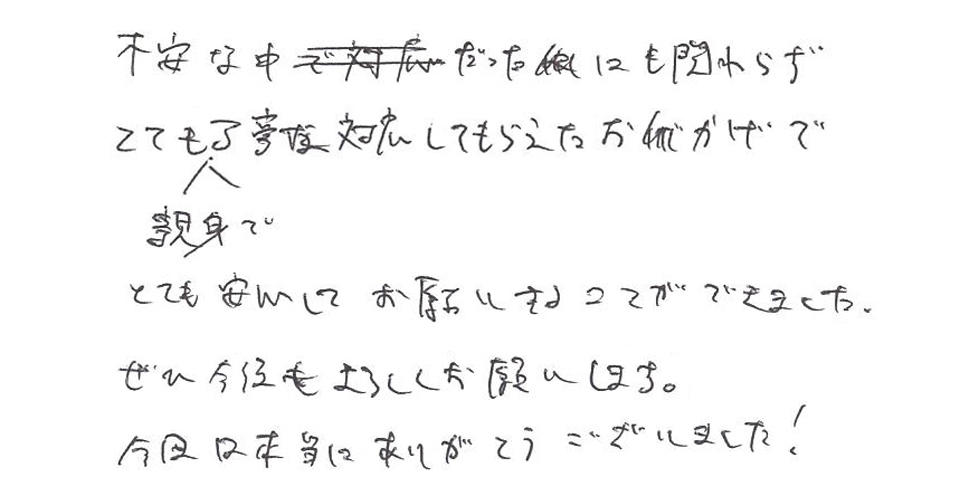 不安な中で対応だったにも関わらず
とても丁寧な対応してもらえたおかげで
親身で
とても安心してお願いすることができました。
ぜひ今後もよろしくお願いします。
今回は本当にありがとうございました！